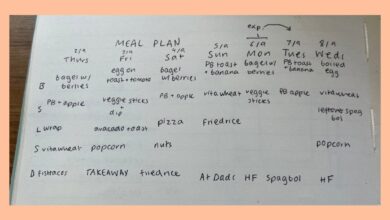 exp
MEAL PLAN
2/9 3/9 4/9 5/9 6/9 7/9 8/9
Thurs Fri Sat Sun Mon Tues Weds
B bagel w/ berries egg on toast + tomato bagel w/ berries PB toast + banana bagel w/ berries PB toast + banana boiled egg
S PB + apple veggie sticks + dip PB + apple vitawheat veggie sticks PB apple vitawheat
L wrap avocado toast pizza friedrice leftover spag bol
S vitawheat popcorn nuts popcorn
D fishtacos TAKEAWAY friedrice At Dads HF Spagbol HF